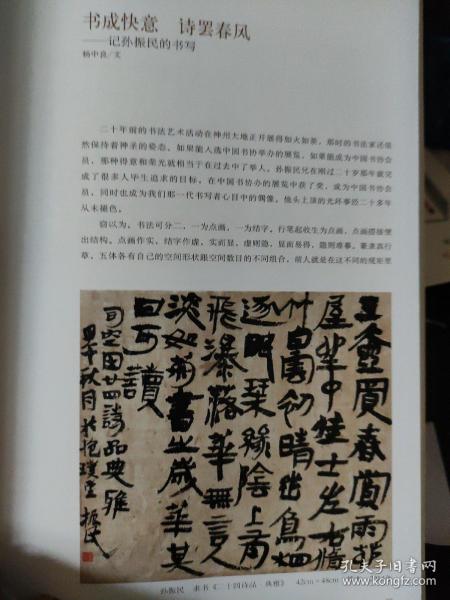 书成快意 诗罢春风
——记孙振民的书写
杨中良/文
二十年前的书法艺术活动在神州大地正开展得如火如荼，那时的书法家还依
然保持着神圣的姿态。如果能入选中国书协举办的展览，如果能成为中国书协会
员，那种得意和荣光就相当于在过去中了举人。孙振民兄在刚过二十岁那年就完
成了很多人毕生追求的目标，在中国书协办的展览中获了奖，成为中国书协会
员，同时也成为我们那一代书写者心目中的偶像，他头上顶的光环事经二十多年
从未褪色。
窃以为，书法可分二，一为点画，一为结字。行笔起收生为点画，点画搭接便
出结构。点画作实，结字作虚，实而显，虚则隐，显而易得，隐则难摹。篆隶真行
草，五体各有自己的空间形状跟空间数目的不同组合，前人就是在这不同的规矩里
玉壶買春賞雨茆
屋坐中佳士左右脩
竹白雲初晴幽鳥相
逐眠琴緑陰上有
飛瀑落華無言人
淡如菊書之歲華其
曰可讀
司空图廿四詩品典雅
甲午秋月於抱璞堂 振民
孙振民 隶书《二十四诗品·典雅》 42cm×48cm
孔夫子旧书网